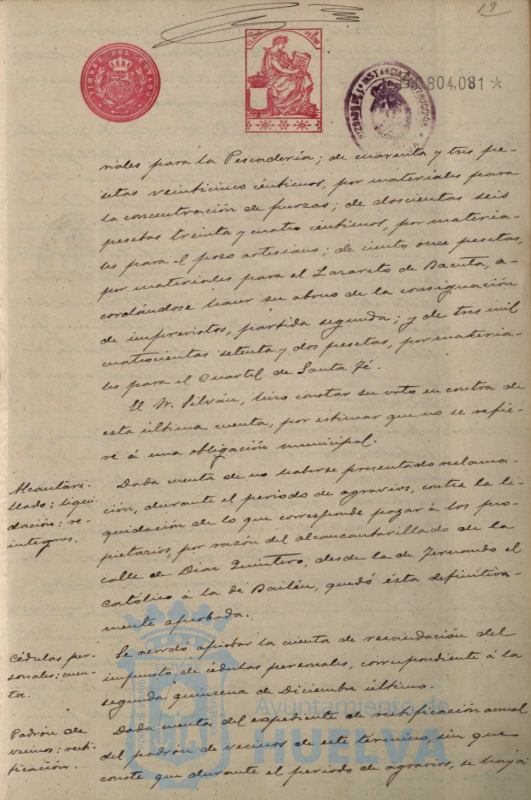 19
TIMBRE DEL ESTADO
804,081 *
riales para la Pescadería; de cuarenta y tres pe-
setas veinticinco céntimos, por materiales para
la concentración de fuerzas; de doscientas seis
pesetas treinta y cuatro céntimos, por materia-
les para el pozo artesiano; de ciento once pesetas,
por materiales para el Lazareto de Bacuta, a-
cordándose hacer su abono de la consignación
de imprevistos, partida segunda; y de tres mil
cuatrocientas setenta y dos pesetas, por materia-
les para el Cuartel de Santa Fé.
El Sr. Silván, hizo constar su voto en contra de
esta última cuenta, por estimar que no se refie-
re á una obligación municipal.
Alcantari-
llado: liqui-
dación: re-
integros.
Dada cuenta de no haberse presentado reclama-
ción, durante el periodo de agravios, contra la li-
quidación de lo que corresponde pagar á los pro-
pietarios, por razón del alcantarillado de la
calle de Diaz Quintero, desde la de Fernando el
Católico á la de Bailén, quedó ésta definitiva-
mente aprobada.
Cédulas per-
sonales: cuen-
ta.
Se acordó aprobar la cuenta de recaudación del
impuesto de cédulas personales, correspondiente á la
segunda quincena de Diciembre último.
Padrón de
vecinos: recti-
ficación.
Dada cuenta del expediente de rectificación anual
del padrón de vecinos de este término, sin que
conste que durante el periodo de agravios, se haya
Ayuntamiento de
HUELVA